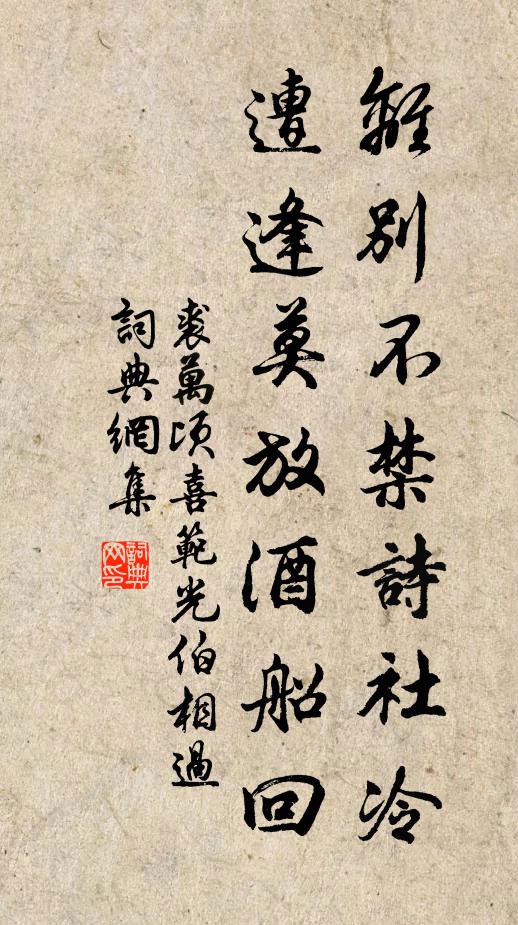 離別不禁詩社冷
遭逢莫放酒船回
裘萬頃喜範光伯相過
詞典網集
詞典网印